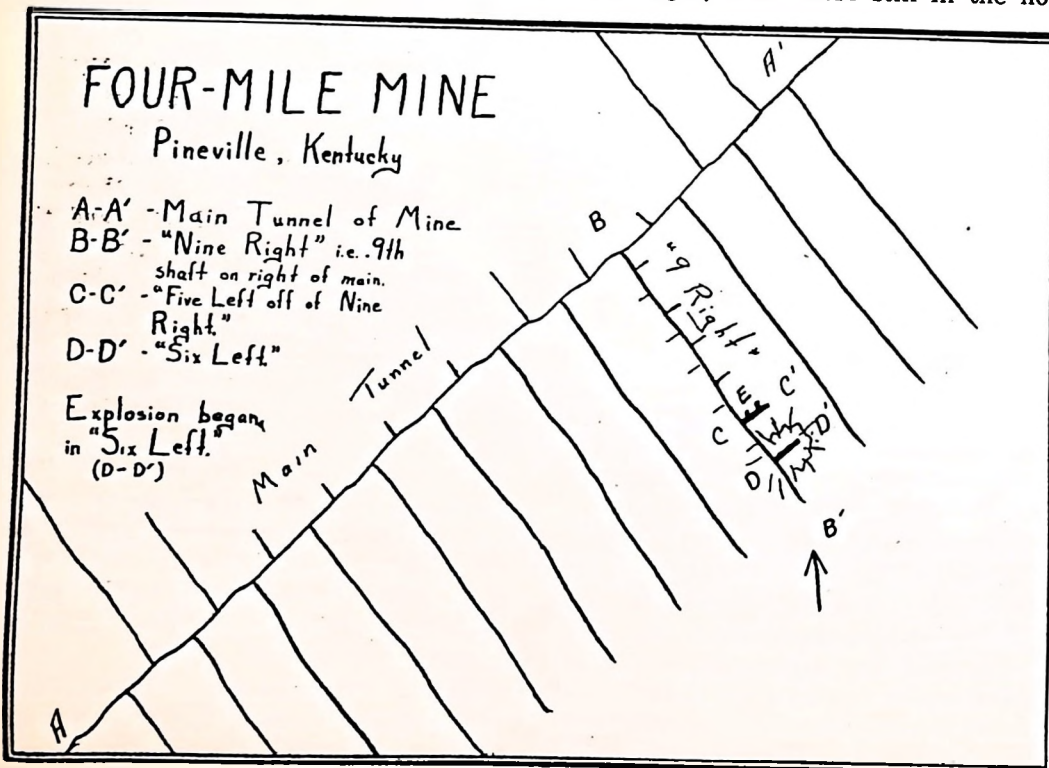 still in the
FOUR-MILE MINE
Pineville, Kentucky
A-A' - Main Tunnel of Mine
B-B' - "Nine Right" i.e. 9th
shaft on right of main.
C-C' - "Five Left" off of Nine
Right."
D-D' - "Six Left"
Explosion began
in "Six Left."
(D-D')
A'
B
"9 Right"
Main Tunnel
E
C'
C
D'
D
B'
A